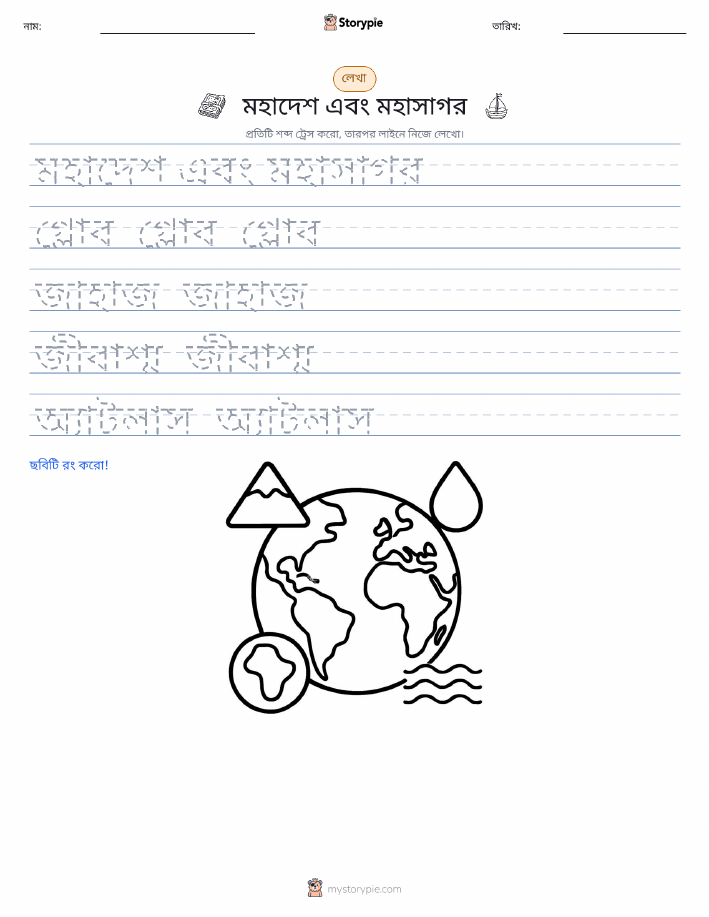 নাম:
Storypie
তারিখ:
লেখা
মহাদেশ এবং মহাসাগর
প্রতিটি শব্দ ট্রেস করো, তারপর লাইনে নিজে লেখো।
মহাদেশ এবং মহাসাগর
গ্লোব গ্লোব গ্লোব
জাহাজ জাহাজ
জীবাশ্ম জীবাশ্ম
অ্যাটলাস অ্যাটলাস
ছবিটি রং করো!
mystorypie.com